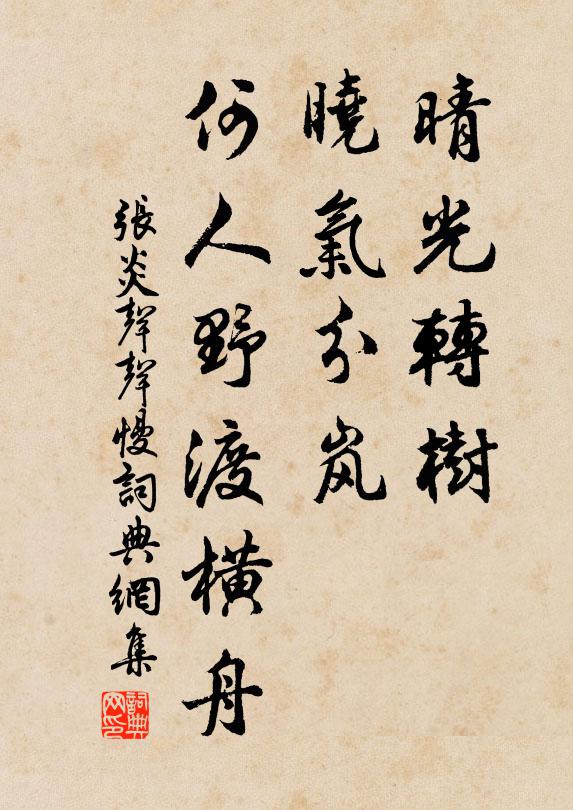 晴光轉樹
曉氣分岚
何人野渡橫舟
張炎聲聲慢詞典網集
詞典网印